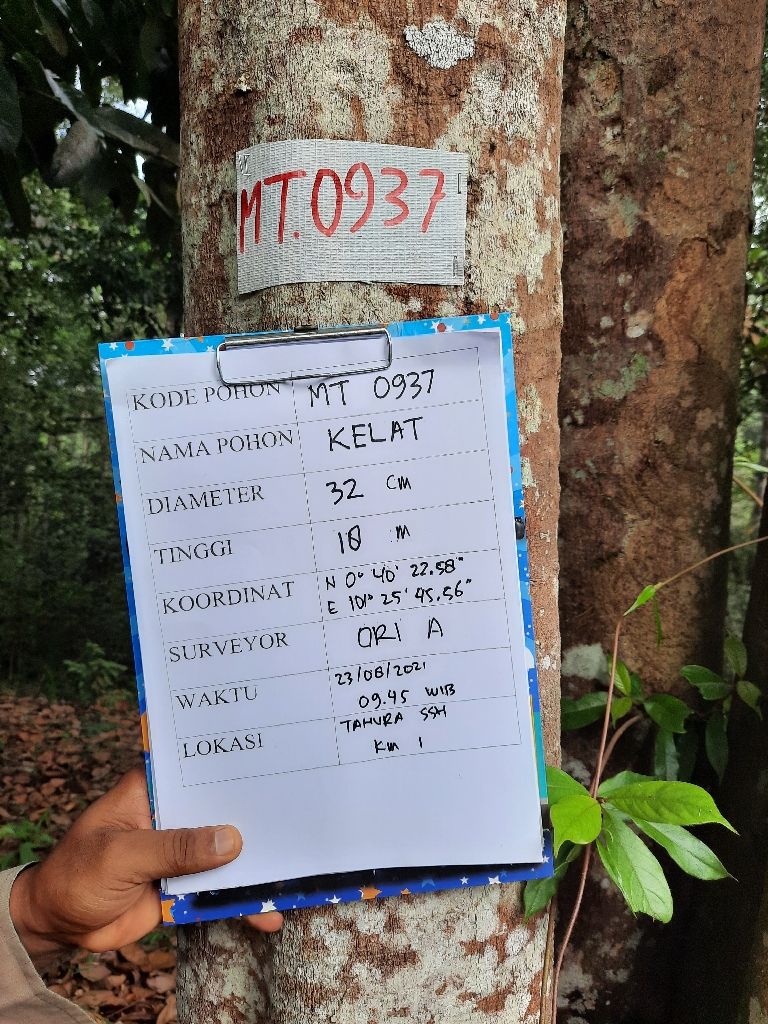 MT.0937
KODE POHON MT 0937
NAMA POHON KELAT
DIAMETER 32 cm
TINGGI 18 m
KOORDINAT N 0° 40' 22.58"
E 101° 25' 45.56"
SURVEYOR ORI A
WAKTU 23/08/2021
09.45 WIB
LOKASI TAHURA SSH
Km 1